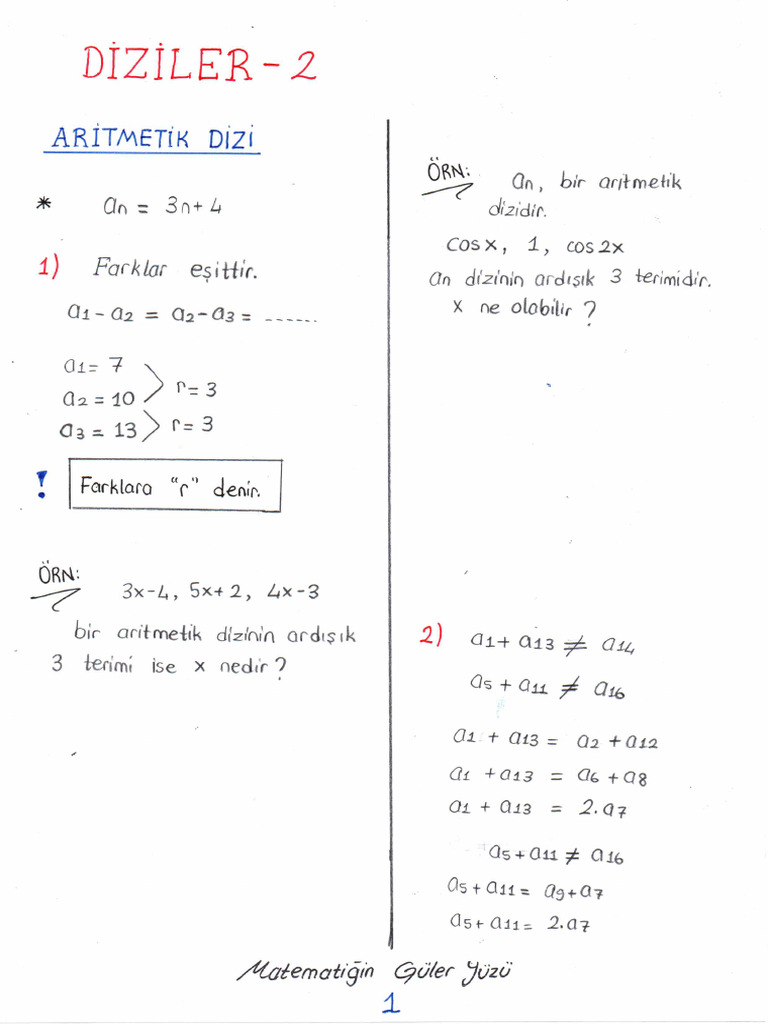 DİZİLER - 2
ARİTMETİK DİZİ
* an = 3n+4
1) Farklar eşittir.
a1 - a2 = a2 - a3 = ......
a1 = 7
a2 = 10
r = 3
a3 = 13
r = 3
! Farklara "r" denir.
ÖRN:
3x-4, 5x+2, 4x-3
bir aritmetik dizinin ardışık
3 terimi ise x nedir?
ÖRN: an, bir aritmetik
dizidir.
cosx, 1, cos2x
an dizinin ardışık 3 terimidir.
x ne olabilir?
2) a1 + a13 ≠ a14
a5 + a11 ≠ a16
a1 + a13 = a2 + a12
a1 + a13 = a6 + a8
a1 + a13 = 2.a7
a5 + a11 ≠ a16
a5 + a11 = a9 + a7
a5 + a11 = 2.a7
Matematiğin Güler Yüzü
1